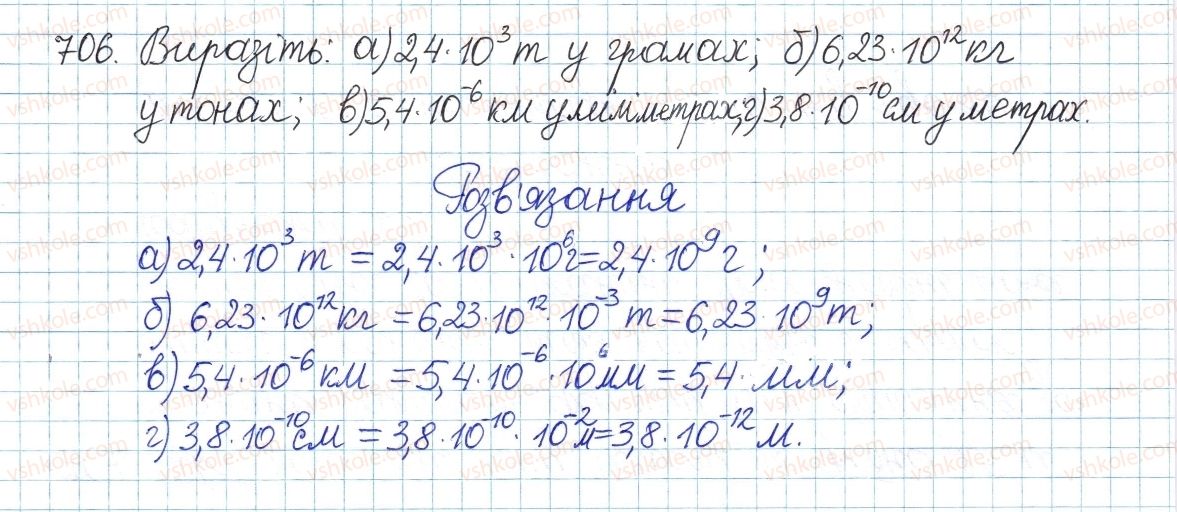 706. Виразіть: а) 2,4·10³ т у грамах; б) 6,23·10¹² кг
у тонах; в) 5,4·10⁻⁶ км у міліметрах; г) 3,8·10⁻¹⁰ см у метрах.
Розв'язання
а) 2,4·10³ т = 2,4·10³·10⁶ г = 2,4·10⁹ г;
б) 6,23·10¹² кг = 6,23·10¹²·10⁻³ т = 6,23·10⁹ т;
в) 5,4·10⁻⁶ км = 5,4·10⁻⁶·10⁶ мм = 5,4· мм;
г) 3,8·10⁻¹⁰ см = 3,8·10⁻¹⁰·10⁻² м = 3,8·10⁻¹² м.